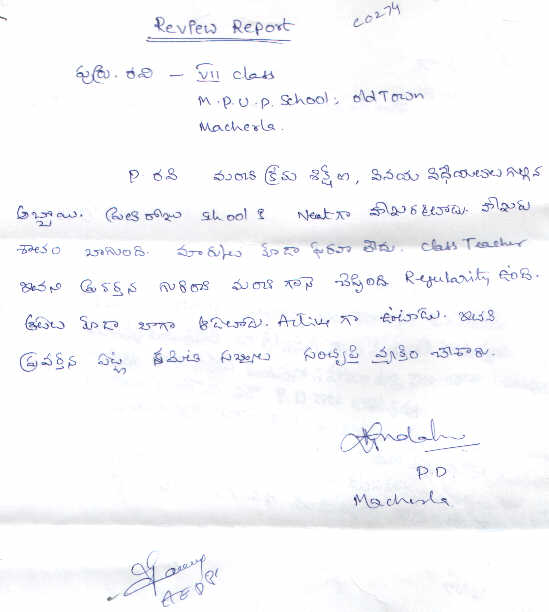 Review Report
C0274
పుట్ర. రవి - VII class
M.P.U.P. School, old Town
Macherla.
P రవి మంచి క్రమ శిక్షణ, వినయ విధేయతలు గల్గిన
అబ్బాయి. ప్రతి రోజు school కి Neat గా హాజరవుతాడు. హాజరు
శాతం బాగుంది. మార్కులు కూడా ఫరవా లేదు. class Teacher
ఇతని ప్రవర్తన గురించి మంచి గానే చెప్పింది Regularity ఉంది.
ఆటలు కూడా బాగా ఆడుతాడు. Active గా ఉంటాడు. ఇతని
ప్రవర్తన పట్ల కమిటి సభ్యులు సంతృప్తి వ్యక్తం చేశారు.
P D
Macherla